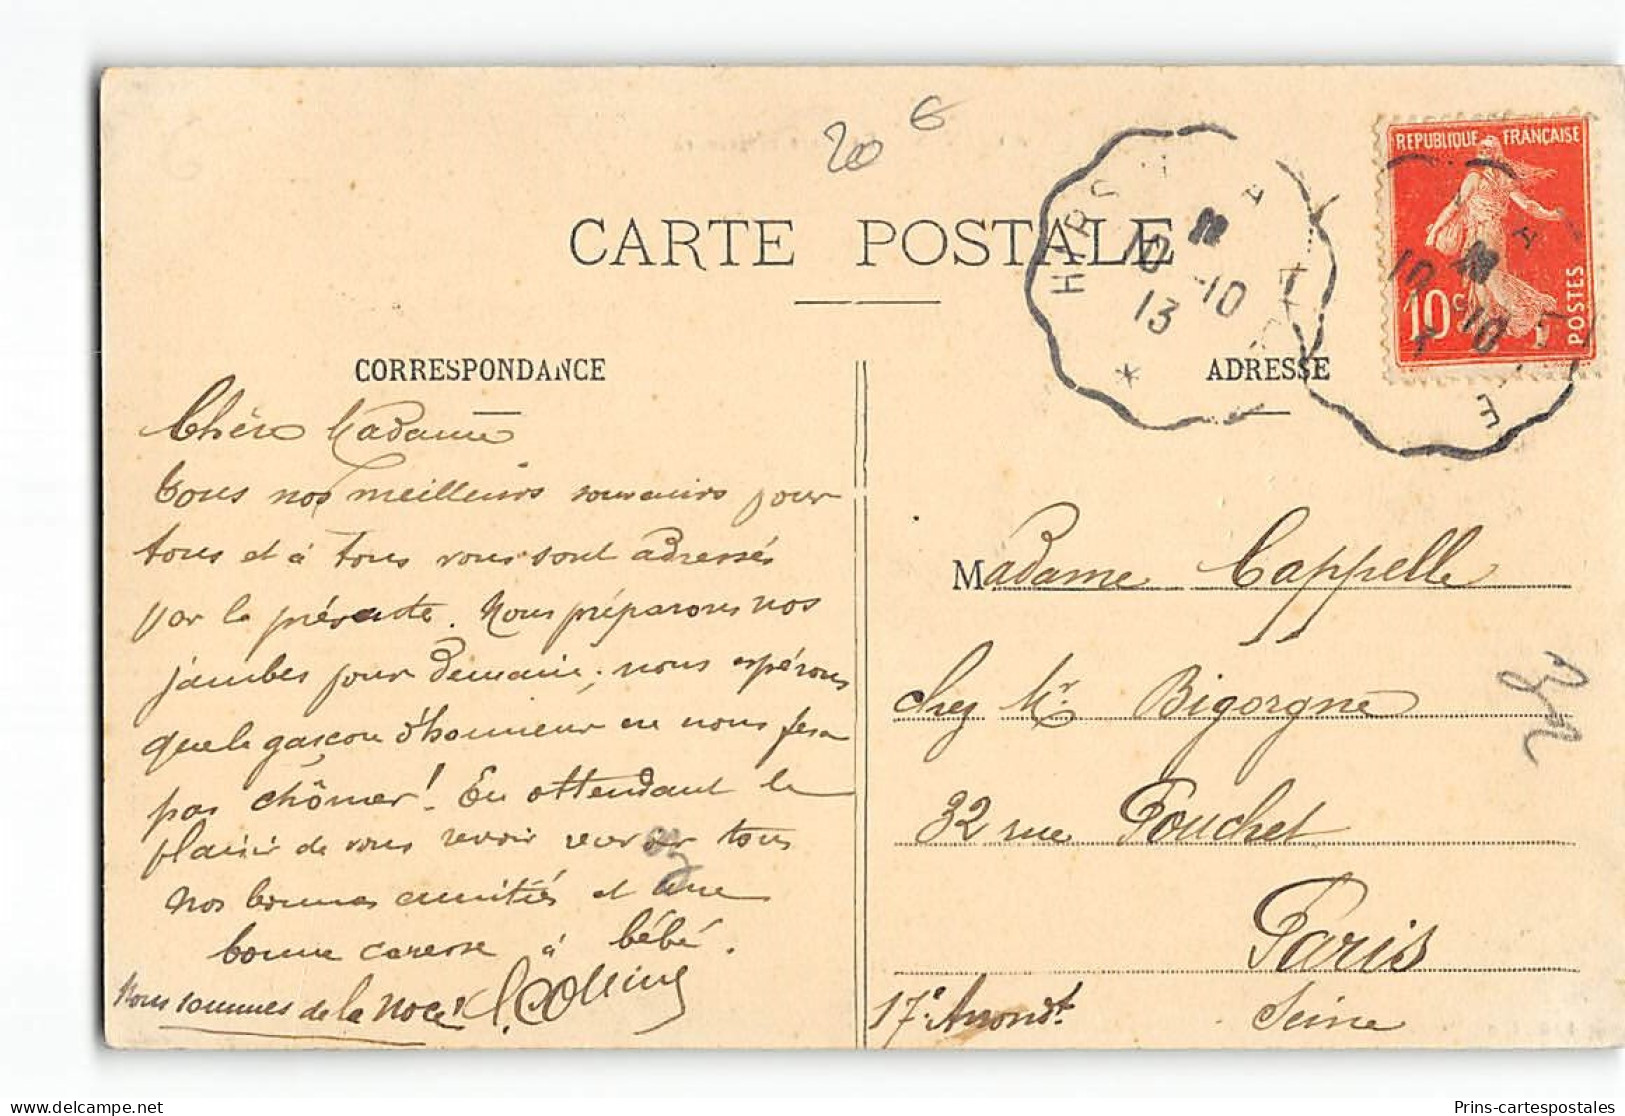 20 €
CARTE POSTALE
REPUBLIQUE FRANÇAISE
10c
POSTES
10 -10
13
CORRESPONDANCE
ADRESSE
Chère Madame
Tous nos meilleurs souvenirs pour
tous et à tous vous sont adressés
par la présente. Nous préparons nos
jambes pour demain; nous espérons
que le garçon d'honneur ne nous fera
pas chômer! En attendant le
plaisir de vous revoir recevez tous
nos bonnes amitiés et une
bonne caresse à bébé.
Nous sommes de la noce!
Madame Cappelle
chez Mr Bigorgne
32 rue Pouchet
Paris
17e Arrondt. Seine
Prins-cartespostales